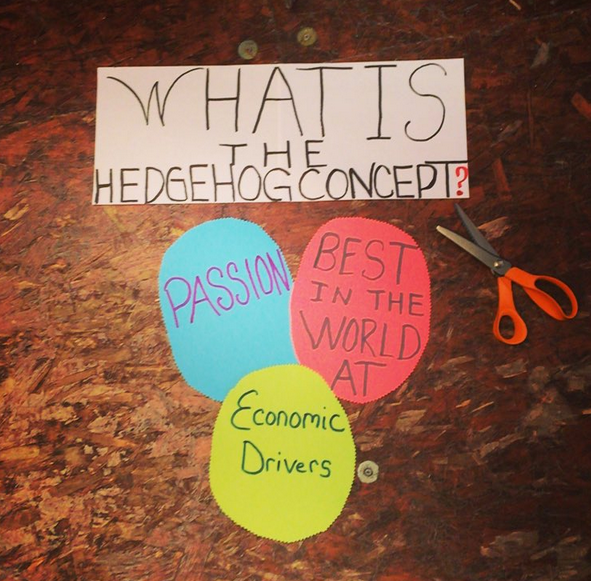 WHAT IS
THE
HEDGEHOG CONCEPT?
PASSION
BEST
IN THE
WORLD
AT
Economic
Drivers